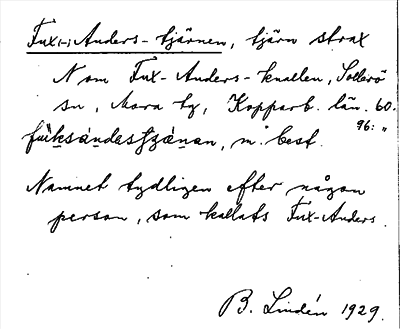 Fux(-)Anders-tjärnen, tjärn strax
N om Fux-Anders-knallen, Sollerö
sn, Mora tg, Kopparb. län. 60.
96: "
m. best.
Namnet tydligen efter någon
person, som kallats Fux-Anders.
B. Lindén 1929.